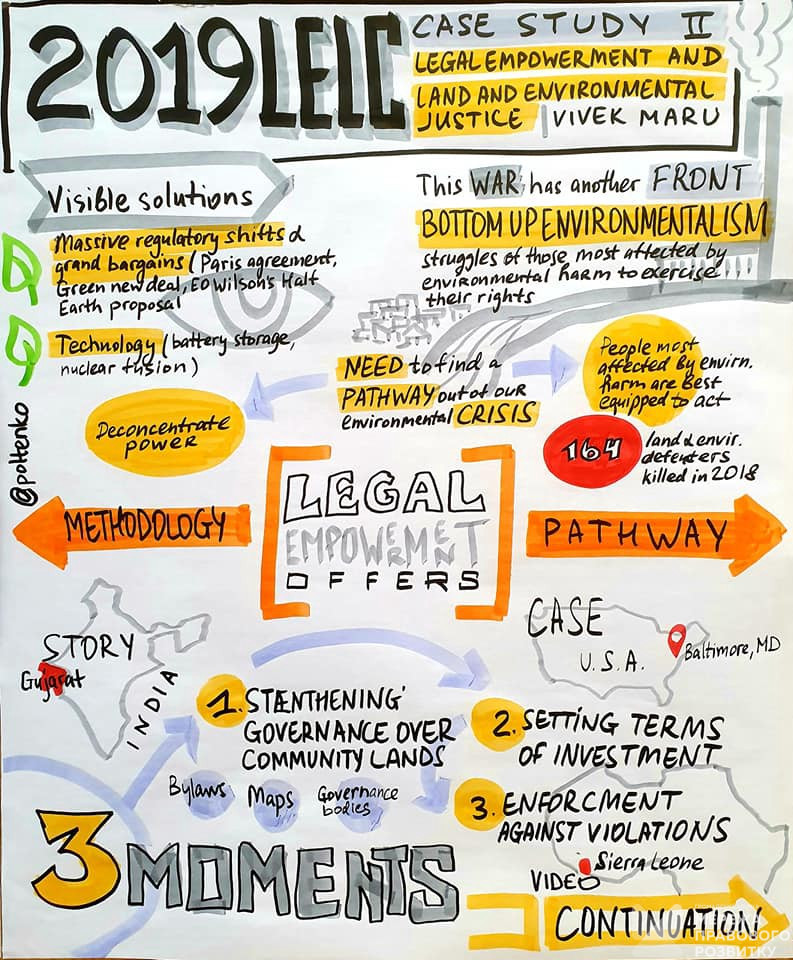 2019 LELC
CASE STUDY II
LEGAL EMPOWERMENT AND
LAND AND ENVIRONMENTAL
JUSTICE | VIVEK MARU
Visible solutions
Massive regulatory shifts &
grand bargains (Paris agreement,
Green new deal, EO Wilson's Half
Earth proposal
Technology (battery storage,
nuclear fusion)
This WAR has another FRONT
BOTTOM UP ENVIRONMENTALISM
struggles of those most affected by
environmental harm to exercise
their rights
NEED to find a
PATHWAY out of our
environmental CRISIS
People most
affected by envirn.
harm are best
equipped to act
Deconcentrate
POWER
164
land & envir.
defenters
killed in 2018
@poltenko
METHODOLOGY
LEGAL
EMPOWERMENT
OFFERS
PATHWAY
STORY
Gujarat
INDIA
CASE
U.S.A.
Baltimore, MD
1. STÆNTHENING'
GOVERNANCE OVER
COMMUNITY LANDS
Bylaws
Maps
Governance
bodies
2. SETTING TERMS
OF INVESTMENT
3. ENFORCMENT
AGAINST VIOLATIONS
Sierra Leone
VIDEO
3 MOMENTS
CONTINUATION
МЕРЕЖА
ПРАВОВОГО
РОЗВИТКУ